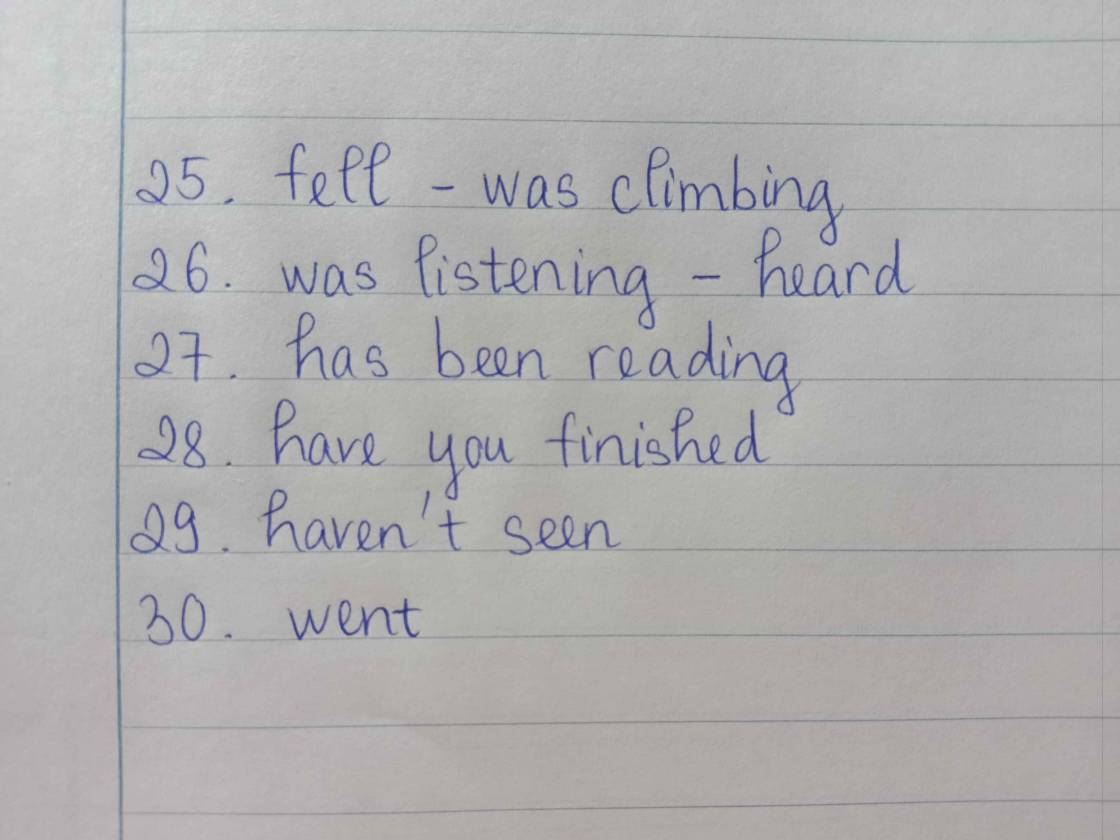 25. fell - was climbing
26. was listening - heard
27. has been reading
28. have you finished
29. haven't seen
30. went